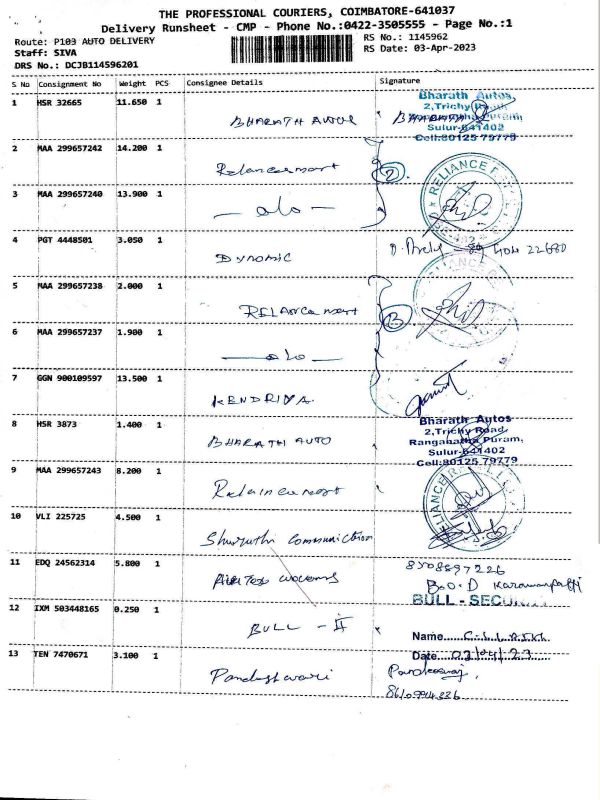 THE PROFESSIONAL COURIERS, COIMBATORE-641037
Delivery Runsheet - CMP - Phone No.:0422-3505555 - Page No.:1
Route: P103 AUTO DELIVERY
RS No.: 1145962
Staff: SIVA
RS Date: 03-Apr-2023
DRS No.: DCJB114596201
S No Consignment No Weight PCS Consignee Details Signature
1 HSR 32665 11.650 1 BHARATH AUTOS
Bharath Autos
2,Trichy Road
Sulur-641402
Cell:80125 79779
2 MAA 299657242 14.200 1 Reliance mart
2
RELIANCE
3 MAA 299657240 13.900 1 — do —
4 PGT 4448501 3.050 1 DYNAMIC
5 MAA 299657238 2.000 1 RELIANCE mart
RELIANCE
6 MAA 299657237 1.900 1 — do —
7 GGN 900109597 13.500 1 KENDRIYA.
8 HSR 3873 1.400 1 BHARATH AUTO
Bharath Autos
2,Trichy Road,
Ranganatha Puram,
Sulur-641402
Cell:80125 79779
9 MAA 299657243 8.200 1
RELIANCE
10 VLI 225725 4.500 1
11 EDQ 24562314 5.800 1
8508897226
B.O.D
12 IXM 503448165 0.250 1 BULL - II
BULL - SECU
Name
Date 03/04/23
13 TEN 7470671 3.100 1